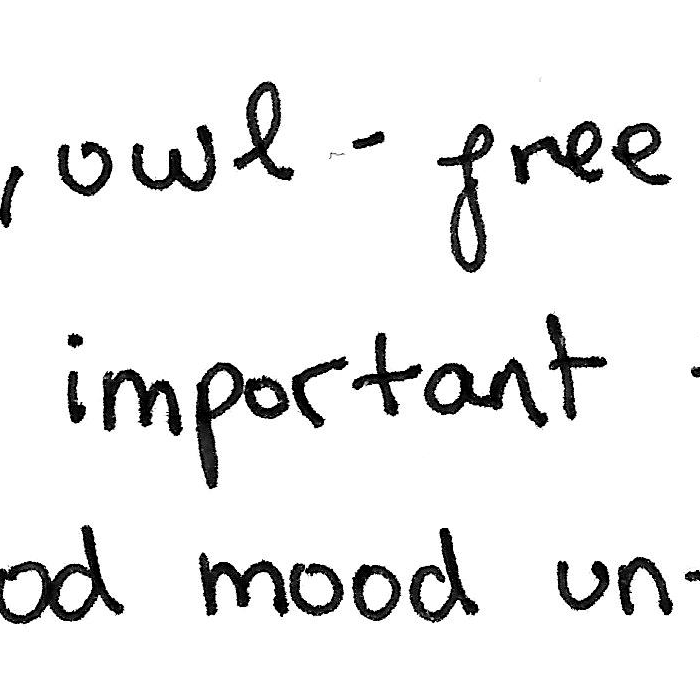 , owl - free
important -
od mood un-